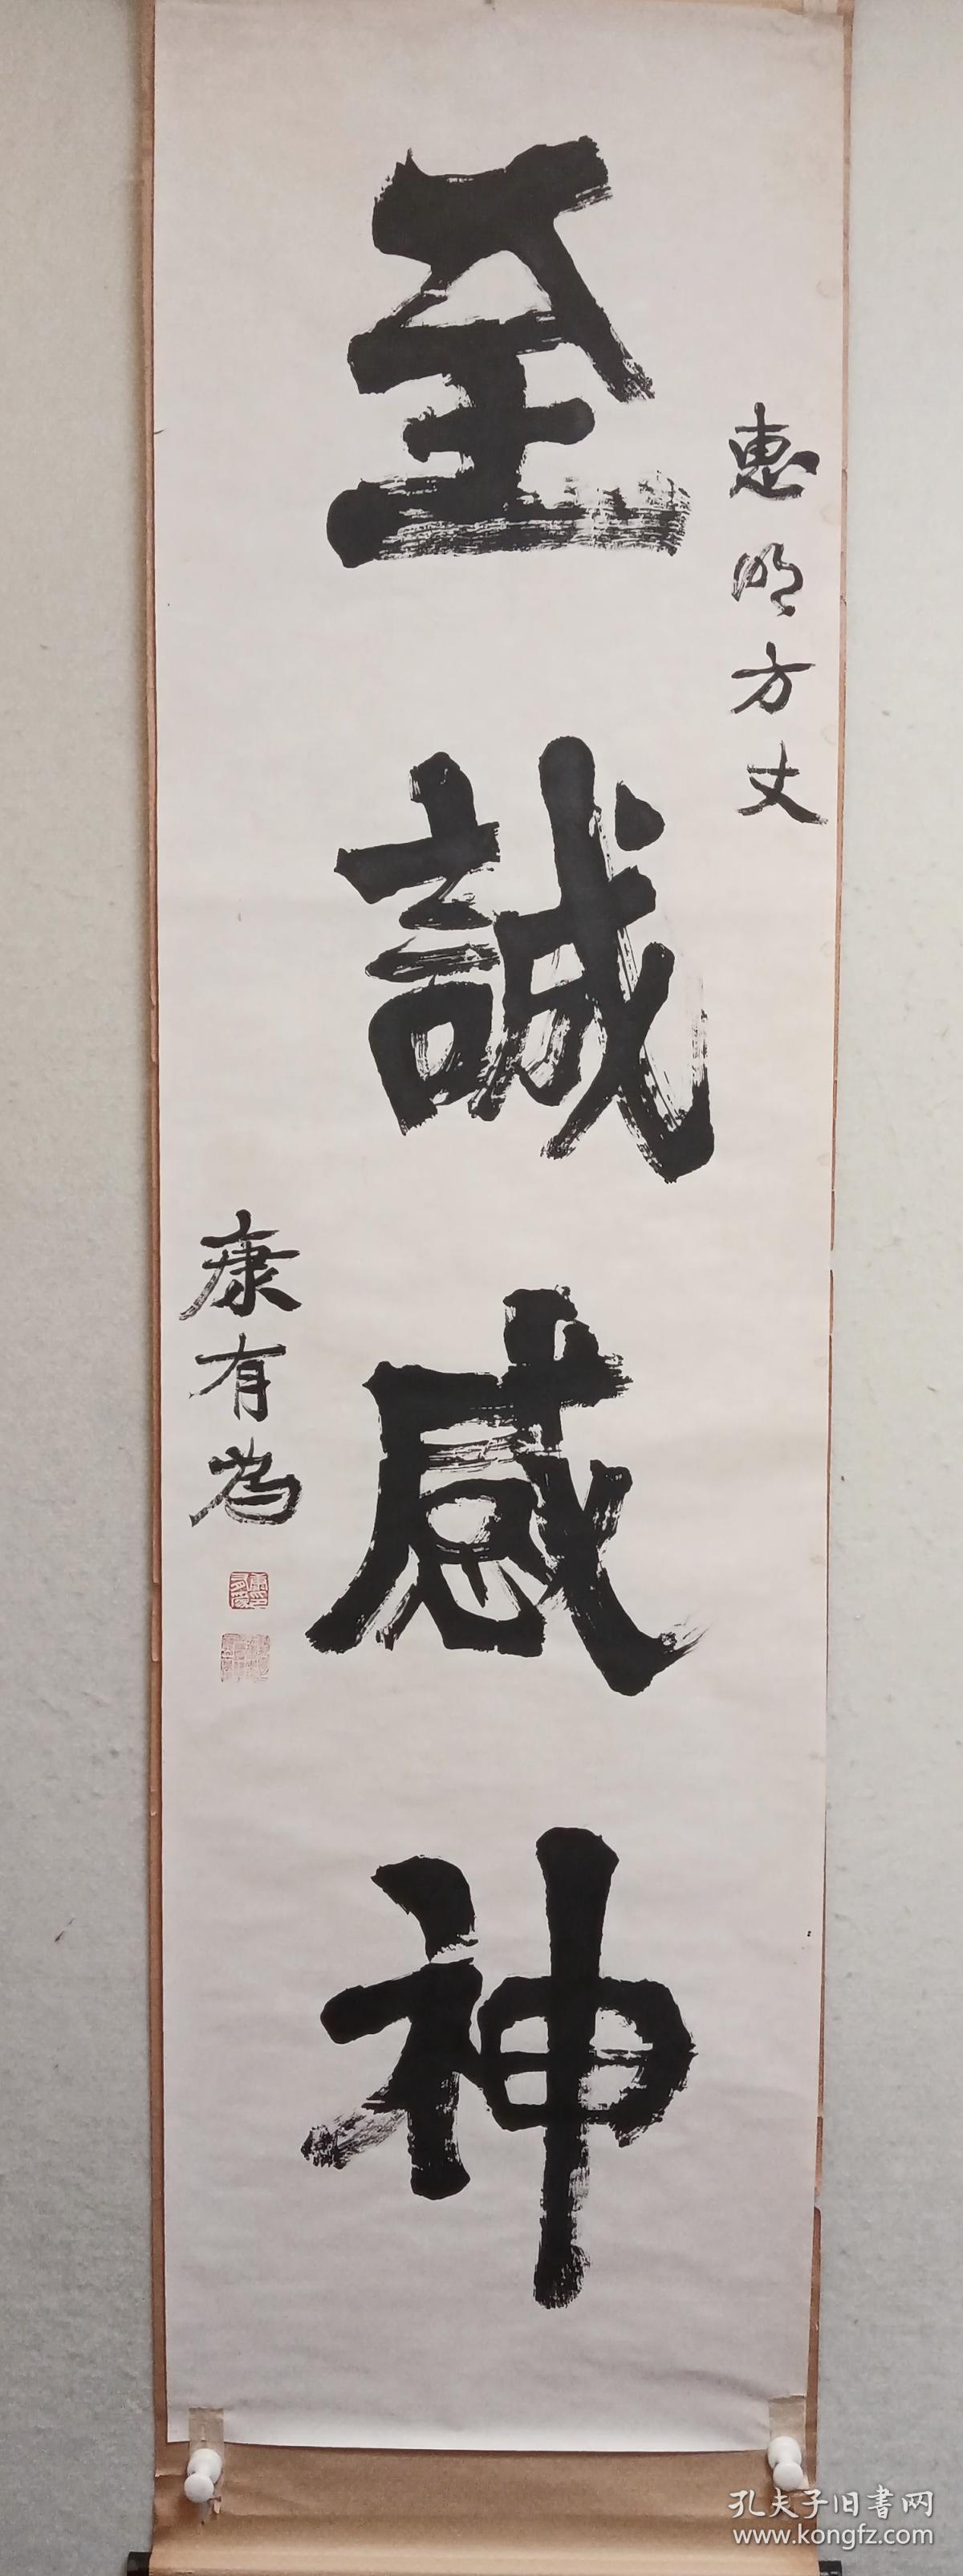 惠明方丈
至誠感神
康有為
孔夫子旧書网
www.kongfz.com